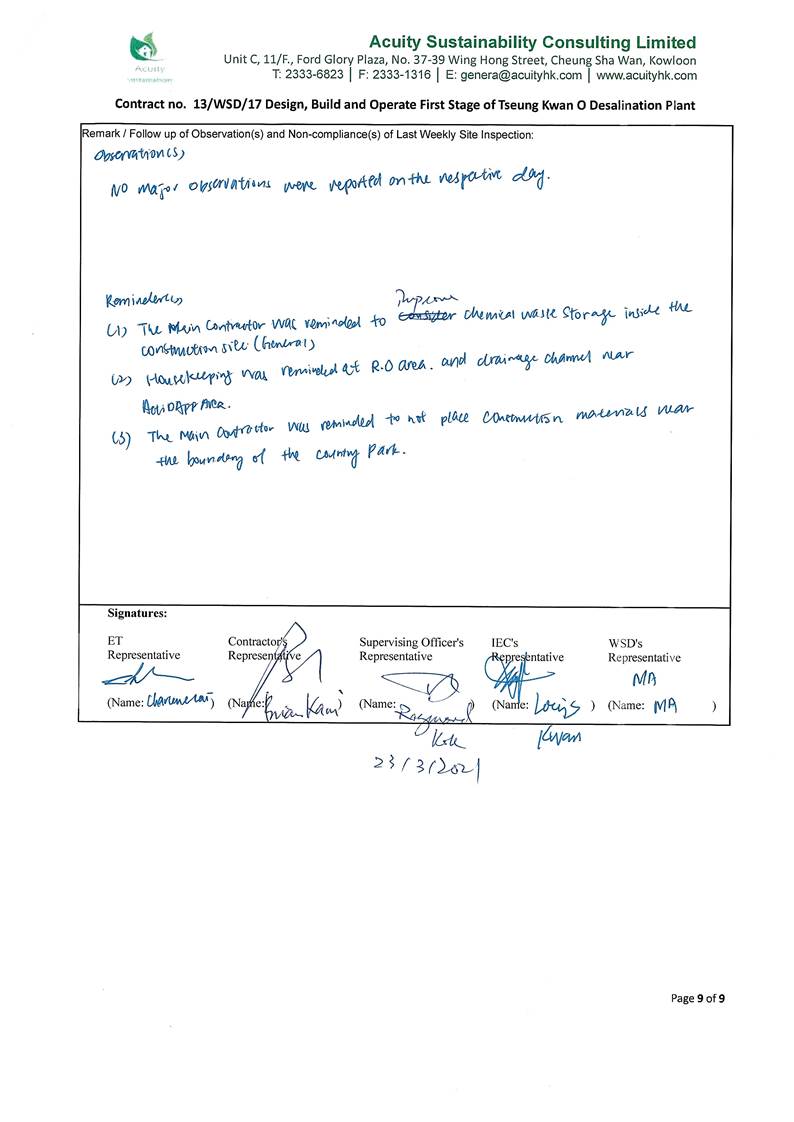 Acuity Sustainability Consulting Limited
Acuity
Unit C, 11/F., Ford Glory Plaza, No. 37-39 Wing Hong Street, Cheung Sha Wan, Kowloon
T: 2333-6823 | F: 2333-1316 | E: genera@acuityhk.com | www.acuityhk.com
Contract no. 13/WSD/17 Design, Build and Operate First Stage of Tseung Kwan O Desalination Plant
Remark / Follow up of Observation(s) and Non-compliance(s) of Last Weekly Site Inspection:
Observation(s)
No major observations were reported on the respective day.
Reminder(s)
Improve
(1) The Main Contractor was reminded to chemical waste storage inside the
construction site (General)
(2) Housekeeping was reminded at R.O area. and drainage channel near
Area.
(3) The Main Contractor was reminded to not place construction materials near
the boundary of the country park.
Signatures:
ET Representative
Contractor's Representative
Supervising Officer's Representative
IEC's Representative
WSD's Representative
MA
(Name: )
(Name: Brian Kam)
(Name: Raymond )
(Name: Louis )
(Name: MA )
Kwan
23/3/2021
Page 9 of 9